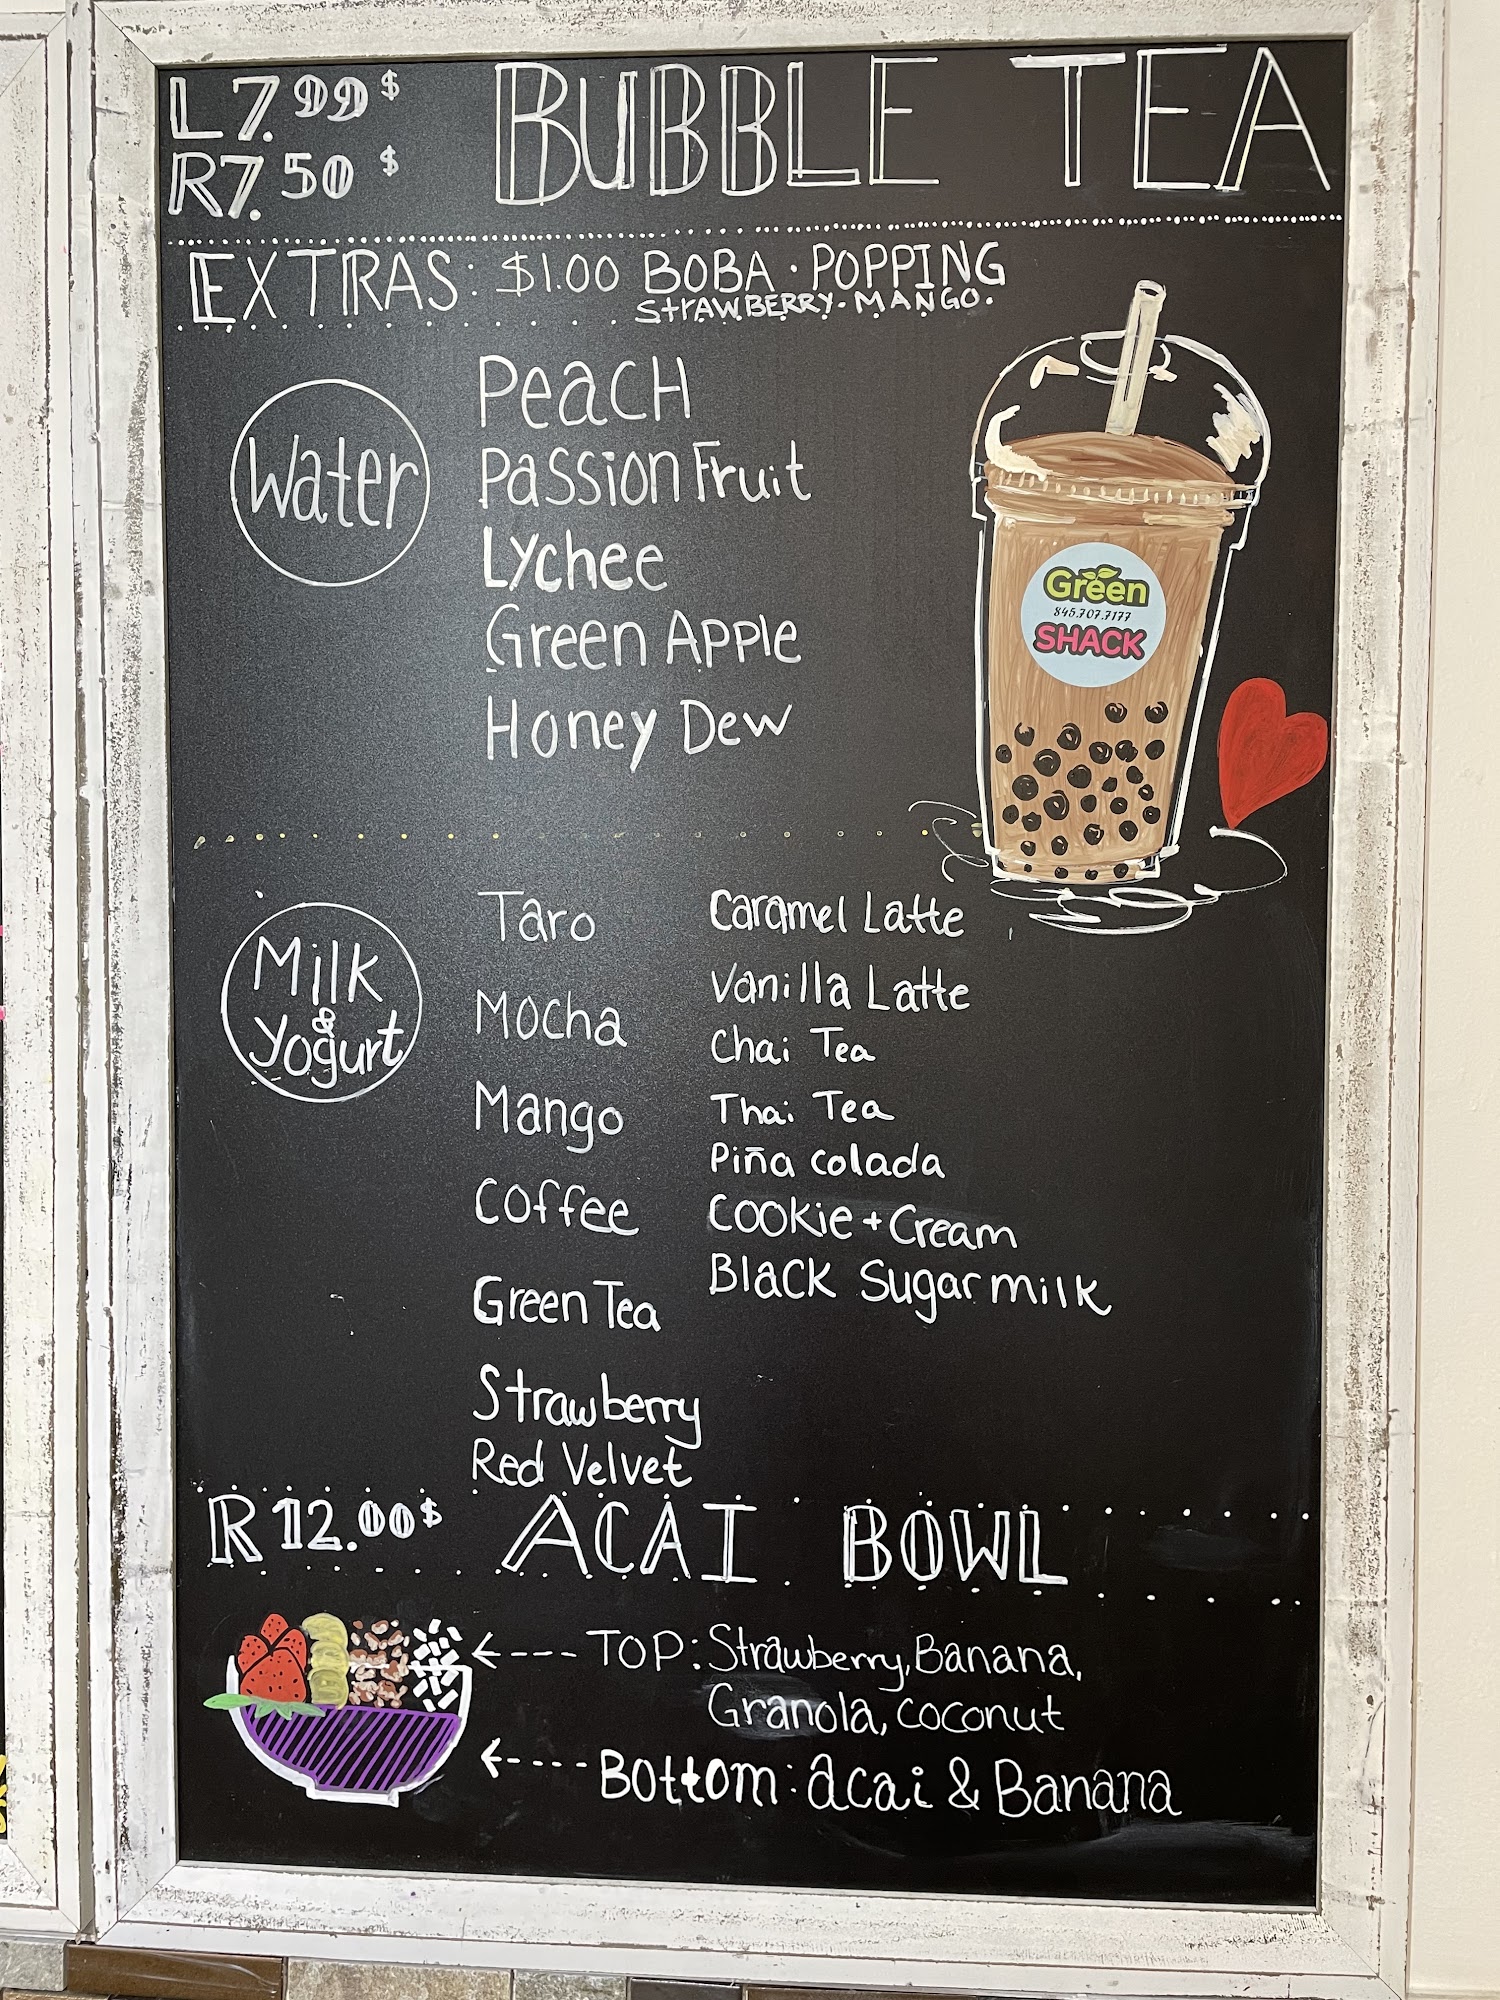 L7.99$
R7.50$
BUBBLE TEA
EXTRAS: $1.00 BOBA · POPPING
STRAWBERRY · MANGO.
Water
Peach
Passion Fruit
Lychee
Green Apple
Honey Dew
Green
845.707.7177
SHACK
Milk
&
Yogurt
Taro
Mocha
Mango
Coffee
Green Tea
Strawberry
Red Velvet
Caramel Latte
Vanilla Latte
Chai Tea
Thai Tea
Piña colada
Cookie + Cream
Black Sugar milk
R12.00$ ACAI BOWL
TOP: Strawberry, Banana,
Granola, coconut
Bottom: acai & Banana